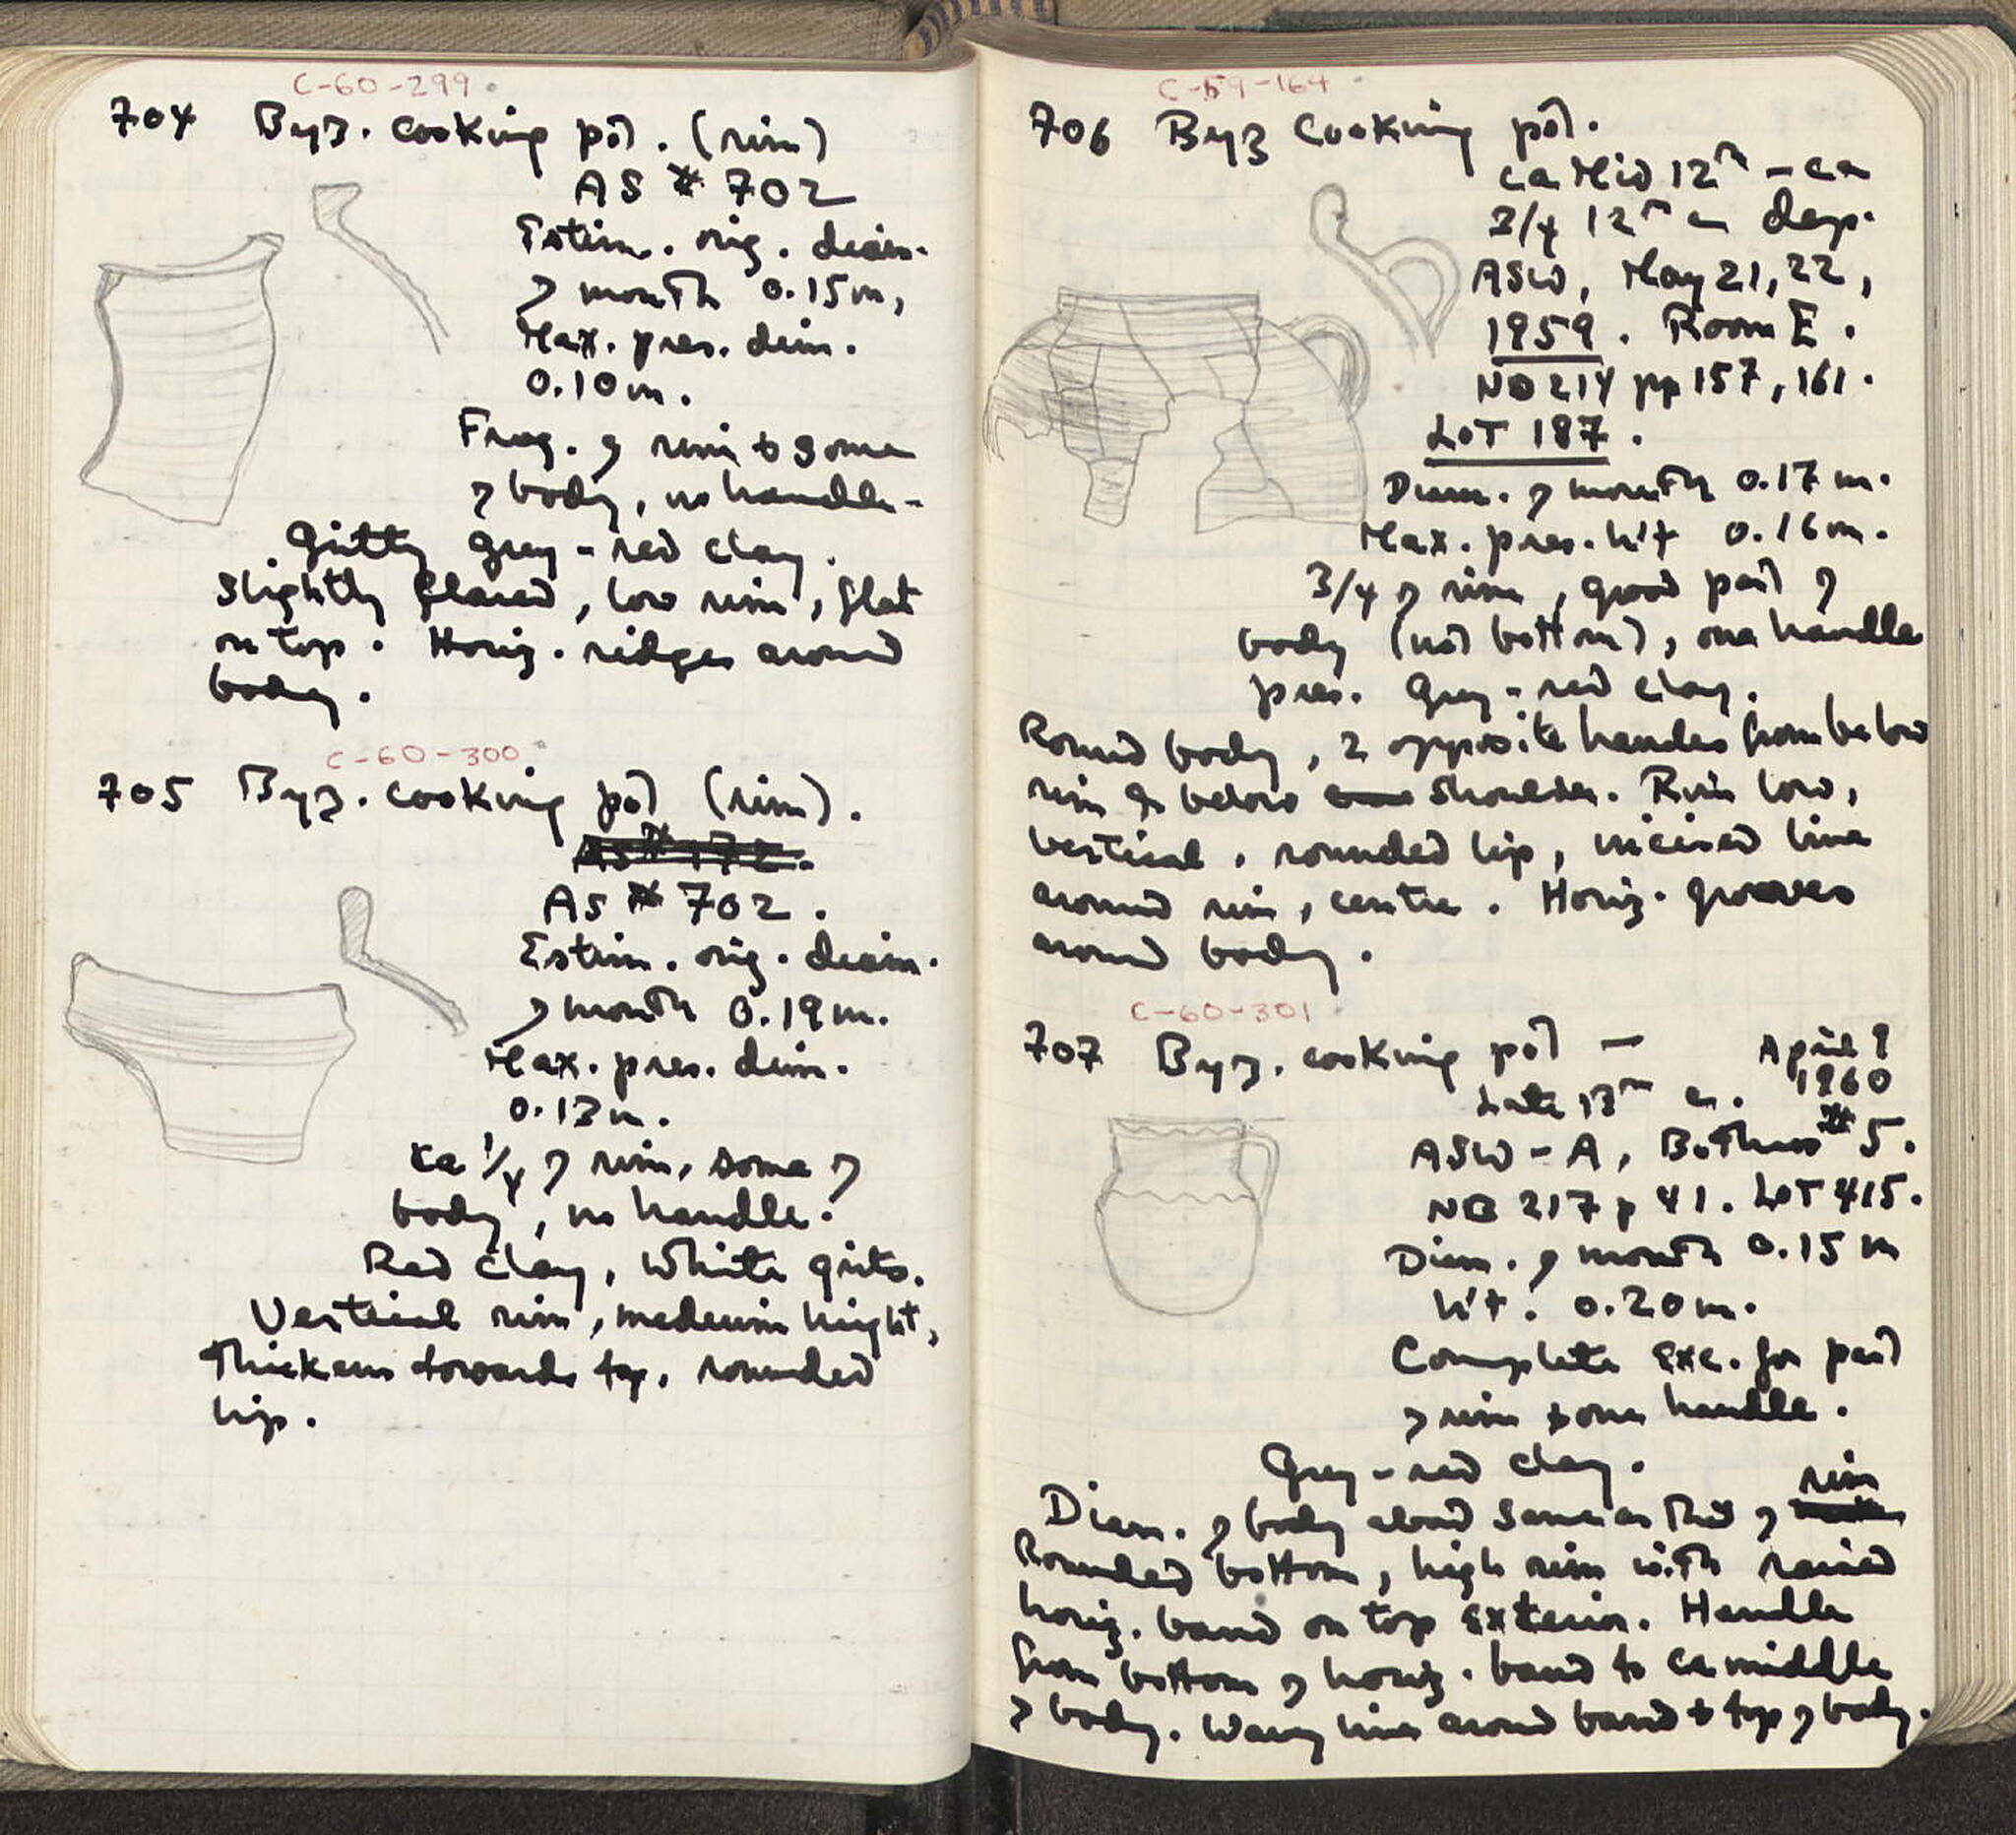 C-60-299.
704 Byz. cooking pot. (rim)
AS # 702
Estim. orig. diam.
of mouth 0.15m,
Max. pres. dim.
0.10m.
Frag. of rim & some
of body, no handle.
Gritty grey-red clay.
Slightly flared, low rim, flat
on top. Horiz. ridges around
body.
C-60-300.
705 Byz. cooking pot (rim).
AS # 172.
AS # 702.
Estim. orig. diam.
of mouth 0.19m.
Max. pres. dim.
0.13m.
ca 1/4 of rim, some of
body, no handle.
Red clay, white grits.
Vertical rim, medium height,
thickens towards top, rounded
lip.
C-59-164
706 Byz Cooking pot.
ca Mid 12th - ca
3/4 12th c. dep.
ASW, May 21, 22,
1959. Room E.
NB 214 pp 157, 161.
LOT 187.
Diam. of mouth 0.17 m.
Max. pres. h't 0.16m.
3/4 of rim, good part of
body (not bottom), one handle
pres. Grey-red clay.
Round body, 2 opposite handles from below
rim to below shoulder. Rim low,
vertical, rounded lip, incised line
around rim, centre. Horiz. grooves
around body.
C-60-301
707 Byz. cooking pot - April 9
1960
Late 13th c.
ASW-A, Bothros # 5.
NB 217 p 41. LOT 415.
Diam. of mouth 0.15 m
h't. 0.20m.
Complete exc. for part
of rim & one handle.
Grey-red clay.
Diam. of body about same as that of rim
Rounded bottom, high rim with raised
horiz. band on top exterior. Handle
from bottom of horiz. band to ca middle
of body. Wavy line around band & top of body.